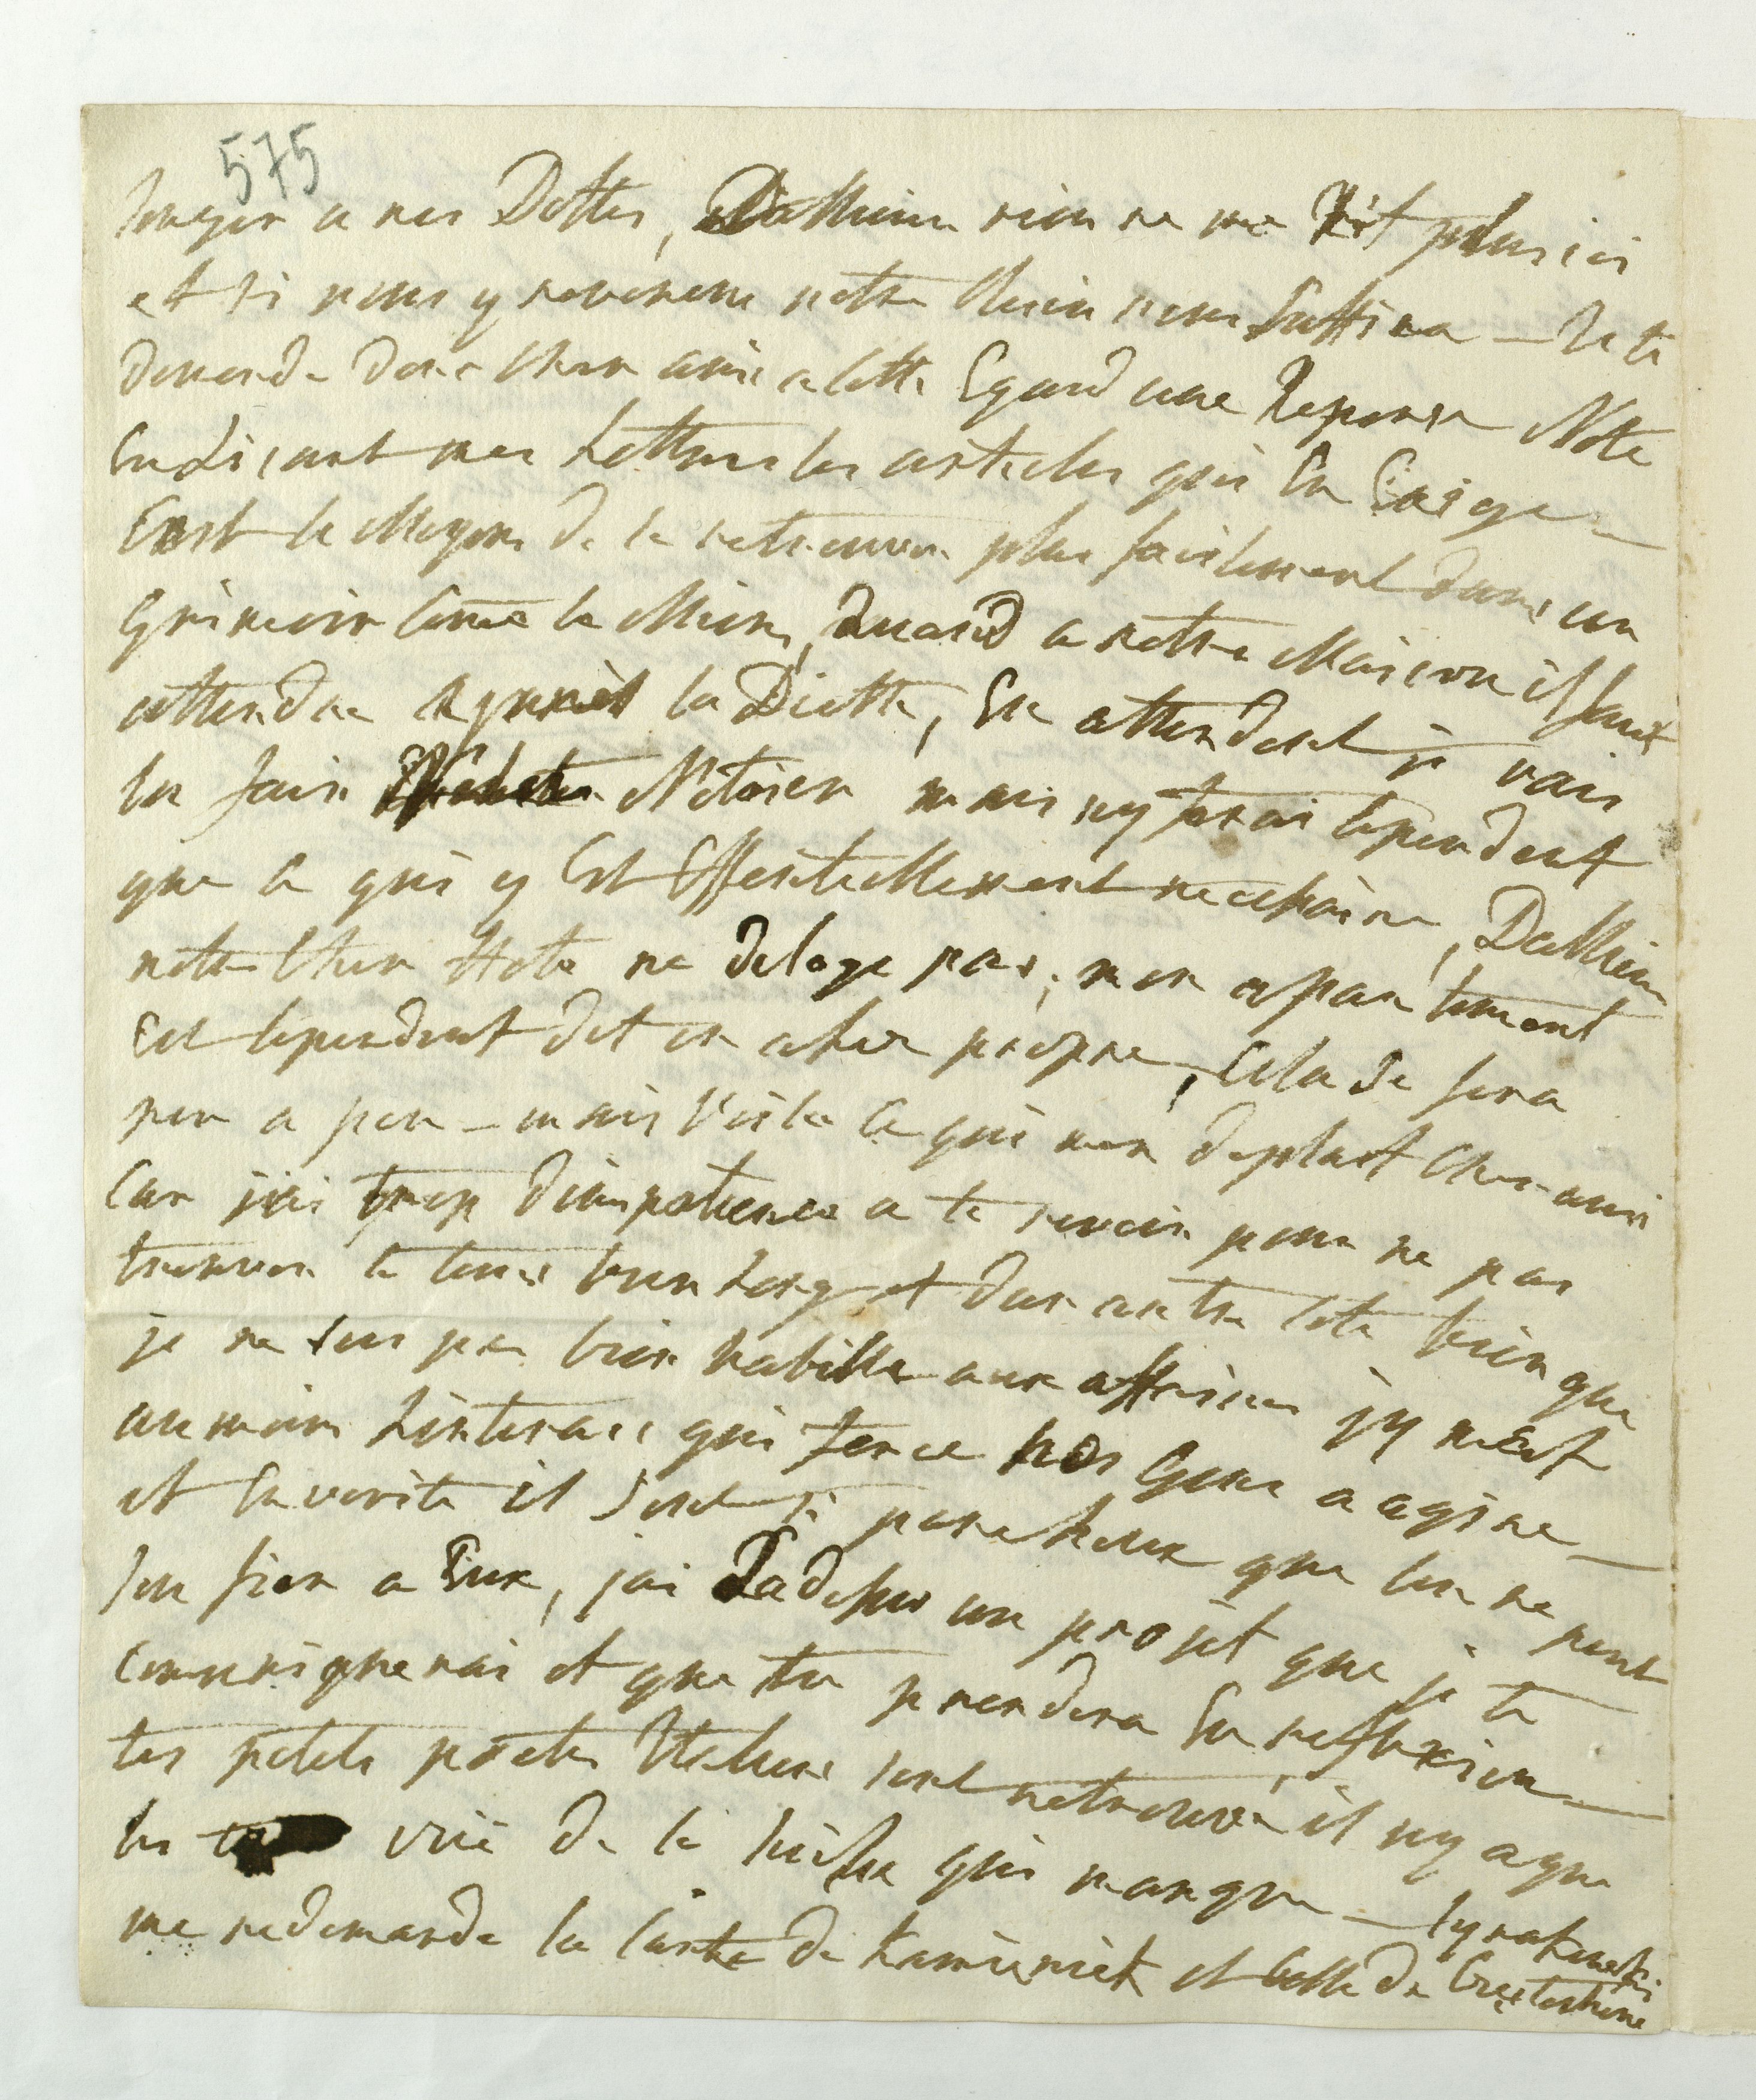 575
songer a nos Dettes, Dailleurs rien ne me Rit plus ici
et si nous y revenons notre Union nous suffira - Je te
demende donc cher ami a cette Egard une Reponse Note
En Lisant mes Lettres les articles qui En Exige -
C'est le Moyens de le retrouver plus facilement dans un
Grimoir come le Mien, Quand a notre Maison il faut
attendre Aprest la Diette, En attendant je vais
la faire Netoier mais ny ferai cependent
que ce qui y Est Essentiellement necessaire, Dailleur
notre Cher Hote ne deloge pas, mon apartement
Est cependent dit on assez propre, Cela se fera
peu a peu - mais Voila ce qui men deplait Cher ami
Car jai trop dimpatience a te revoir pour ne pas
trouver le tems bien Long et dun autre cote bien que
je ne suis pas bien habille aux affaires jy met
au moins Linterais qui force nos Gens a agire -
et En verite il sont si paresseux que lon ne peut
sen fier a Eux, jai Ladessus un projet que je te
comuniquerai et que tu prendera En reflexion -
tes petits poete Italiens sont retrouvé il ny a que
les vié de la qui manque - Synakowski
me redemande la Carte de Kamieniek et Celle de